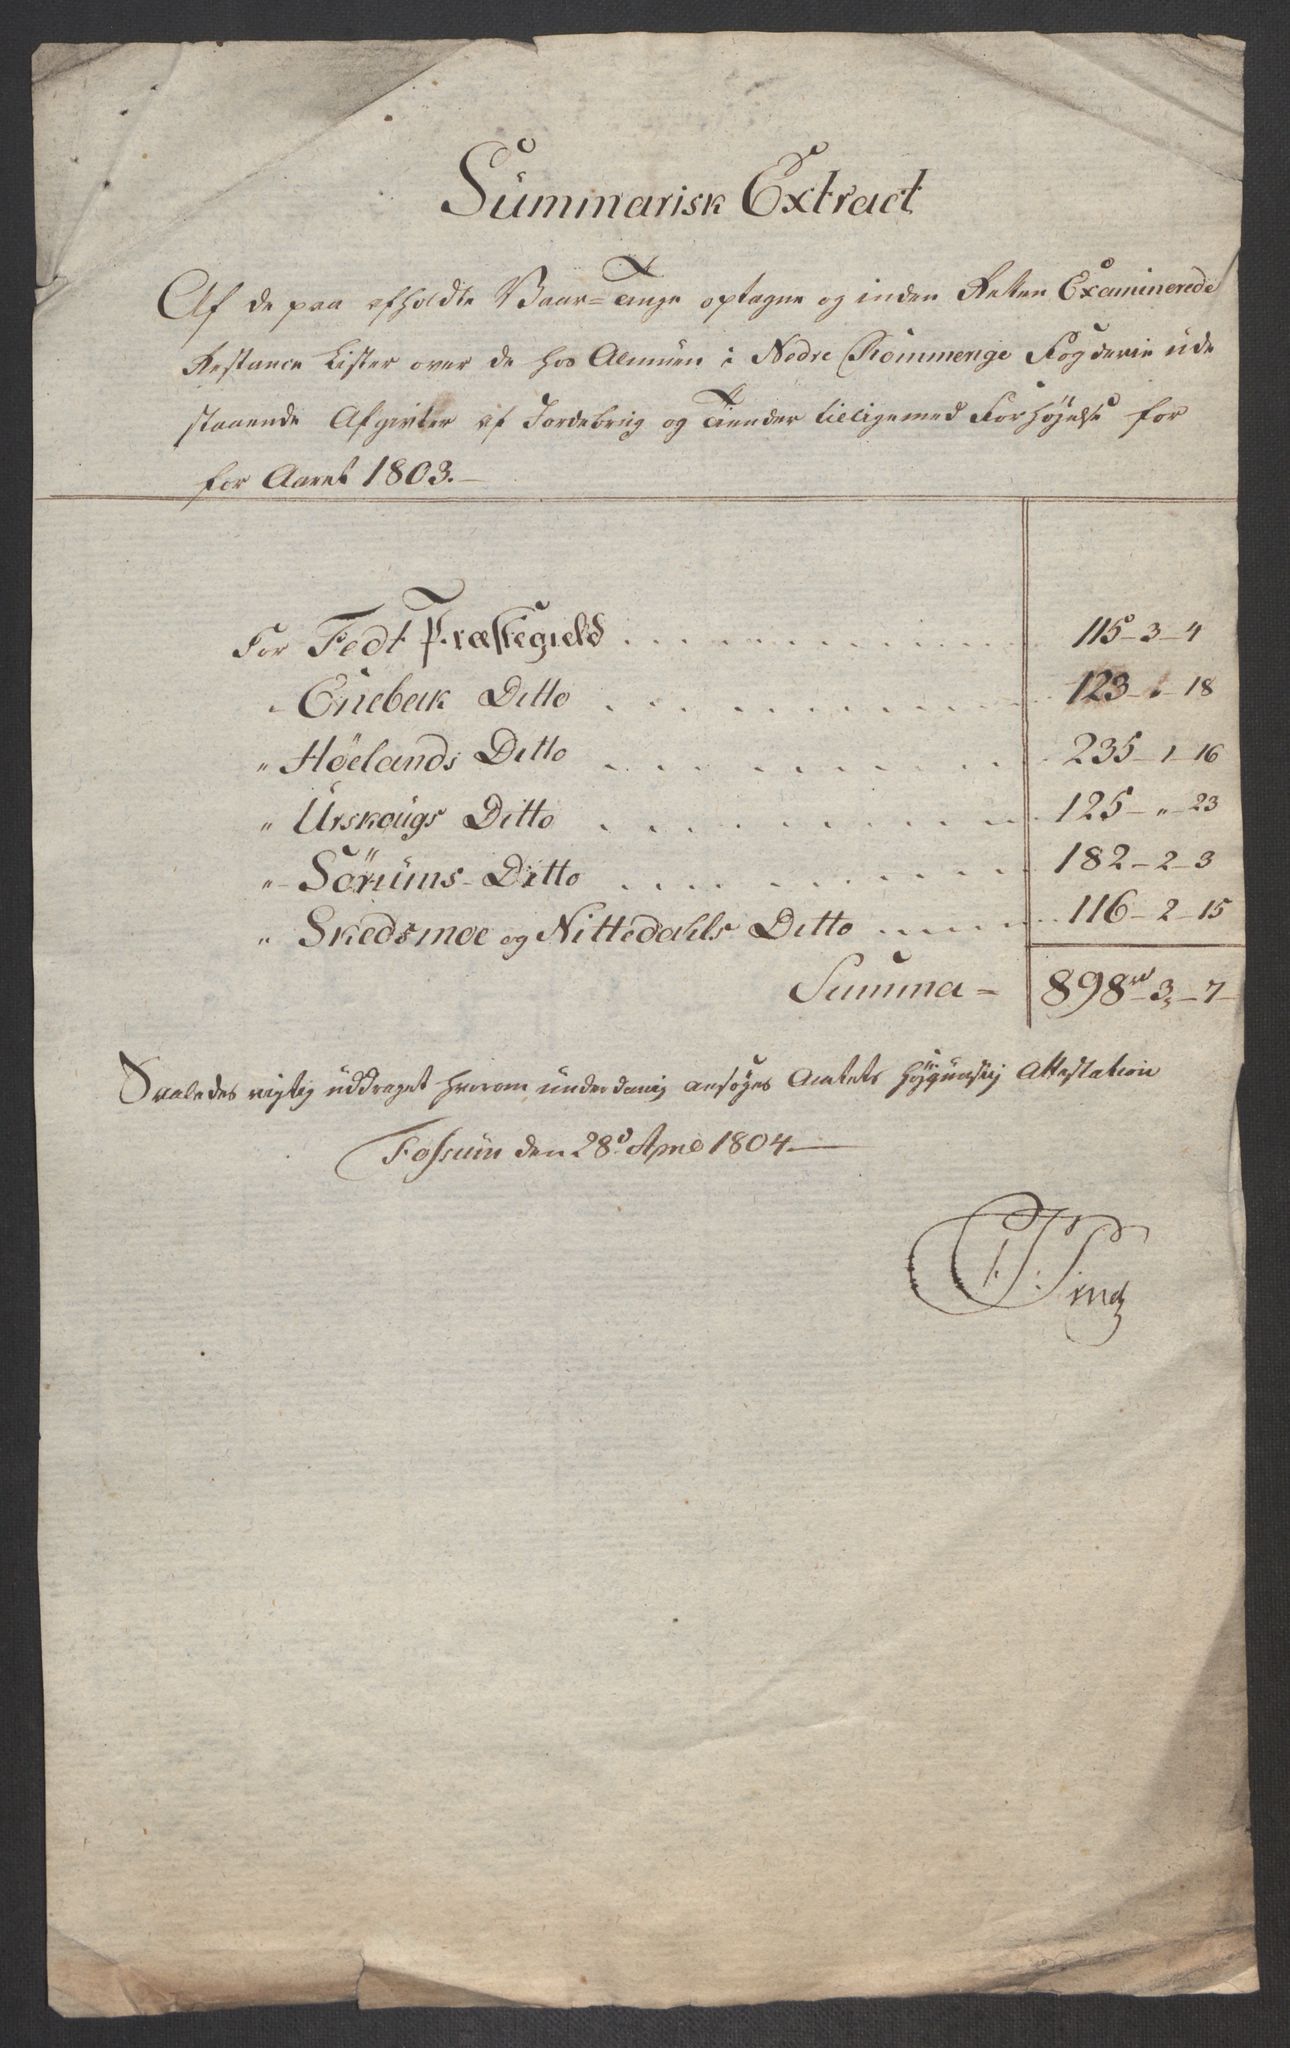 Summarisk Extract
Af de paa afholdte Vaar=Tinge optagne og inden Retten Examinerede
Restance Lister over de hos Almuen i Nedre Rommerige Fogderie ude
staaende Afgivter af Jordebrug og Tiender tilligemed Forhøjelse for
for Aaret 1803.—
For Fedt Præstegield . . . . . . . . . 115 – 3 – 4
„ Enebak Ditto . . . . . . . . . 123 – 1 – 18
„ Høelands Ditto . . . . . . . . . 235 – 1 – 16
„ Urskougs Ditto . . . . . . . . . 125 – „ – 23
„ Sørums Ditto . . . . . . . . . 182 – 2 – 3
„ Skedsmoe og Nittedahls Ditto . . . . . 116 – 2 – 15
Summa = 898 rd – 3 – 7 –
Saaledes rigtig uddraget hvorom underdanig ansøges Amtets høygunstig Attestation
Fossum den 28d. April 1804 —